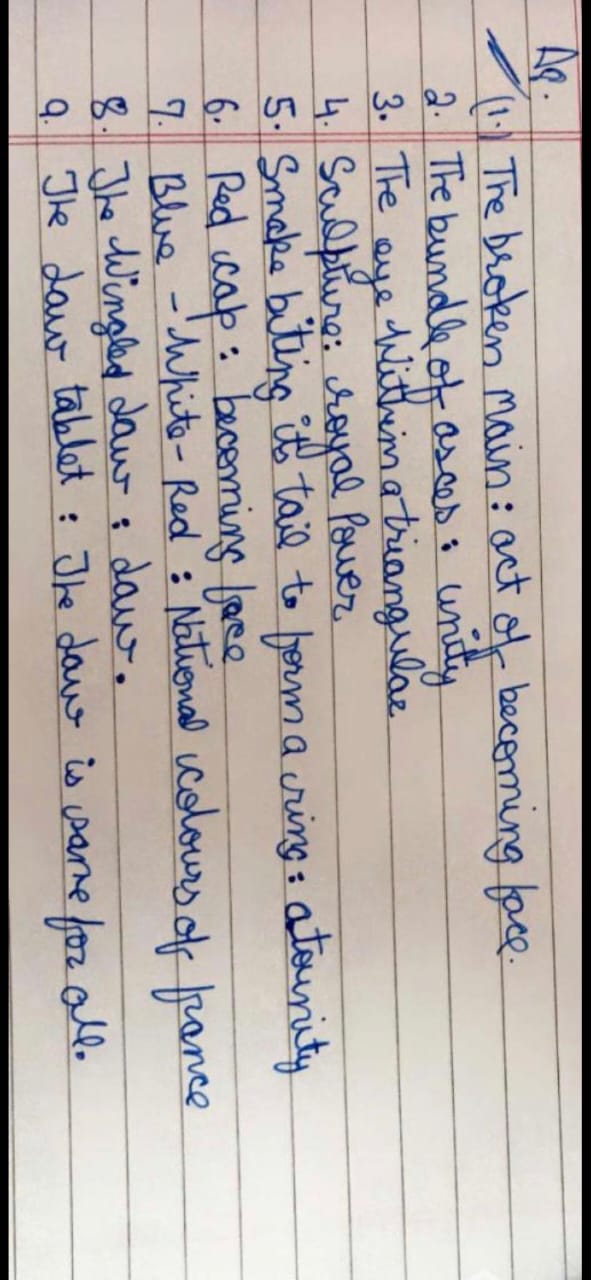 A9.
(1.) The broken main : act of becoming face.
2. The bundle of asces : unity
3. The eye Within a triangulae
4. Sculpture : royal Power
5. Smake biting its tail to form a ring : atounity
6. Red cap : becoming face
7. Blue - White - Red : National colours of france
8. The Wingled Law : Law.
9. The Law tablet : The Law is same for all.